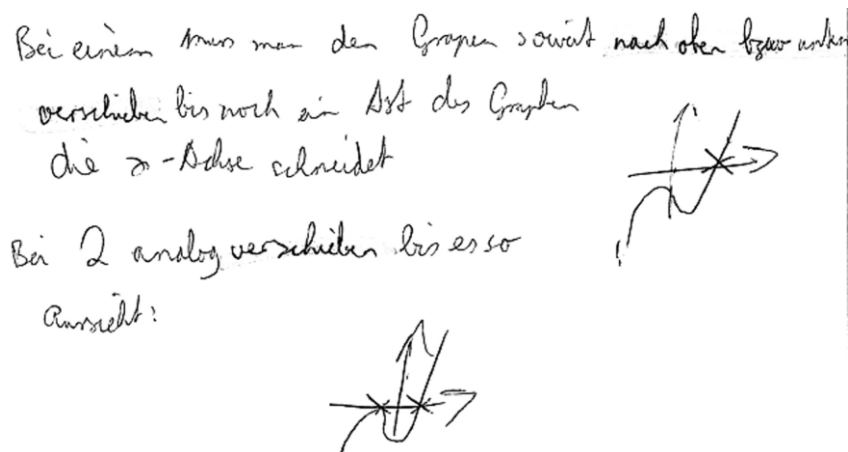 Bei einem muss man den Grapen soweit nach oben bzw unten
verschieben bis noch ein Ast des Graphen
die x-Achse schneidet
Bei 2 analog verschieben bis es so
Aussieht: